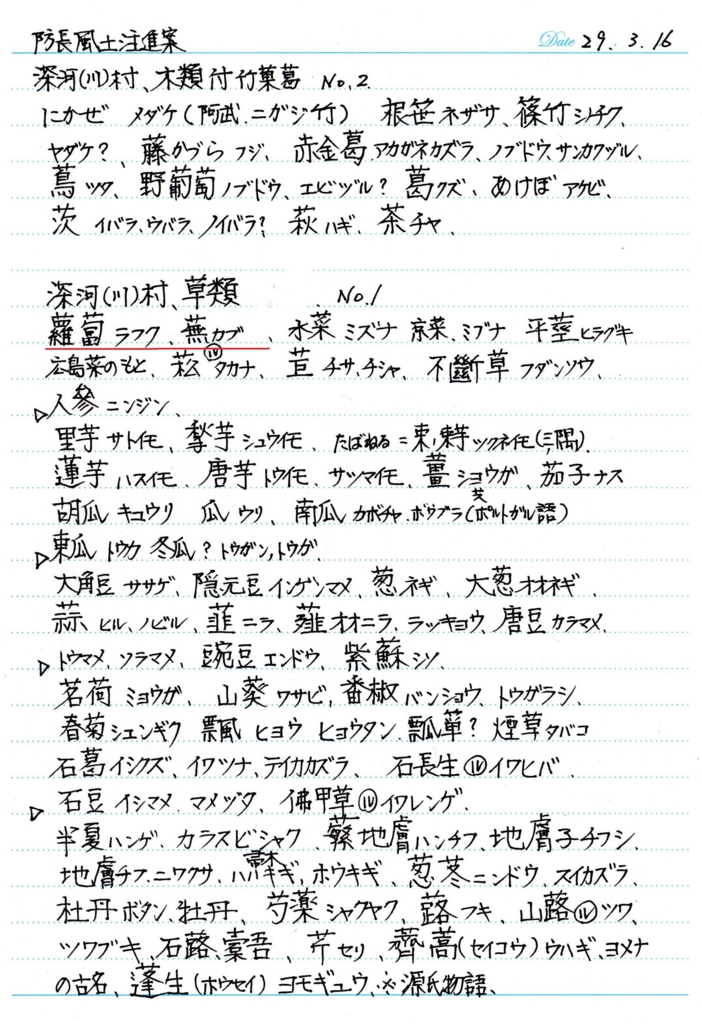 防長風土注進案 Date 29.3.16
深河(川)村、木類付竹菓葛 No.2
にかぜ メダケ(阿武.ニガジ竹) 根笹ネザサ、篠竹シノチク、
ヤダケ?、藤かづら フジ、赤金葛アカガネカズラ、ノブドウ、サンカクヅル、
蔦ツタ、野葡萄ノブドウ、エビヅル?葛クズ、あけぼアケビ、
茨 イバラ、ウバラ、ノイバラ?萩ハギ、茶チャ、
深河(川)村、草類 No.1
蘿蔔ラフク、蕪カブ、水菜ミズナ 京菜、ミブナ 平莖ヒラグキ
広島菜のもと、菘⑩タカナ、苣チサ、チシャ、不斷草フダンソウ、
▷人參ニンジン、
里芋サトイモ、芋シュウイモ、たばねる=束、芋ツクネイモ(三隅)、
蓮芋ハスイモ、唐芋トウイモ、サツマイモ、薑ショウガ、茄子ナス
胡瓜キュウリ 瓜ウリ、南瓜カボチャ、ボウブラ(ポルトガル語)
▷東瓜トウカ 冬瓜?トウガン、トウガ、
大角豆ササゲ、隠元豆インゲンマメ、葱ネギ、大葱オオネギ、
蒜ヒル、ノビル、韮ニラ、薤オオニラ、ラッキョウ、唐豆カラマメ、
▷トウマメ、ソラマメ、豌豆エンドウ、紫蘇シソ
茗荷ミョウガ、山葵ワサビ、番椒バンショウ、トウガラシ、
春菊シュンギク 瓢ヒョウ ヒョウタン、瓢箪?煙草タバコ
石葛イシクズ、イワツナ、テイカカズラ、石長生⑩イワヒバ、
▷石豆イシマメ マメヅタ、佛甲草⑩イワレンゲ、
半夏ハンゲ、カラスビシャク、地膚ハンチフ、地膚子チフシ、
地膚チフ、ニワクサ、ハハキギ、ホウキギ、葱苳ニンドウ、スイカズラ、
杜丹ボタン、牡丹、芍薬シャクヤク、蕗フキ、山蕗⑩ツワ、
ツワブキ、石蕗、橐吾、芹セリ、薺蒿(セイコウ)ウハギ、ヨメナ
の古名、蓬生(ホウセイ)ヨモギュウ、※源氏物語、